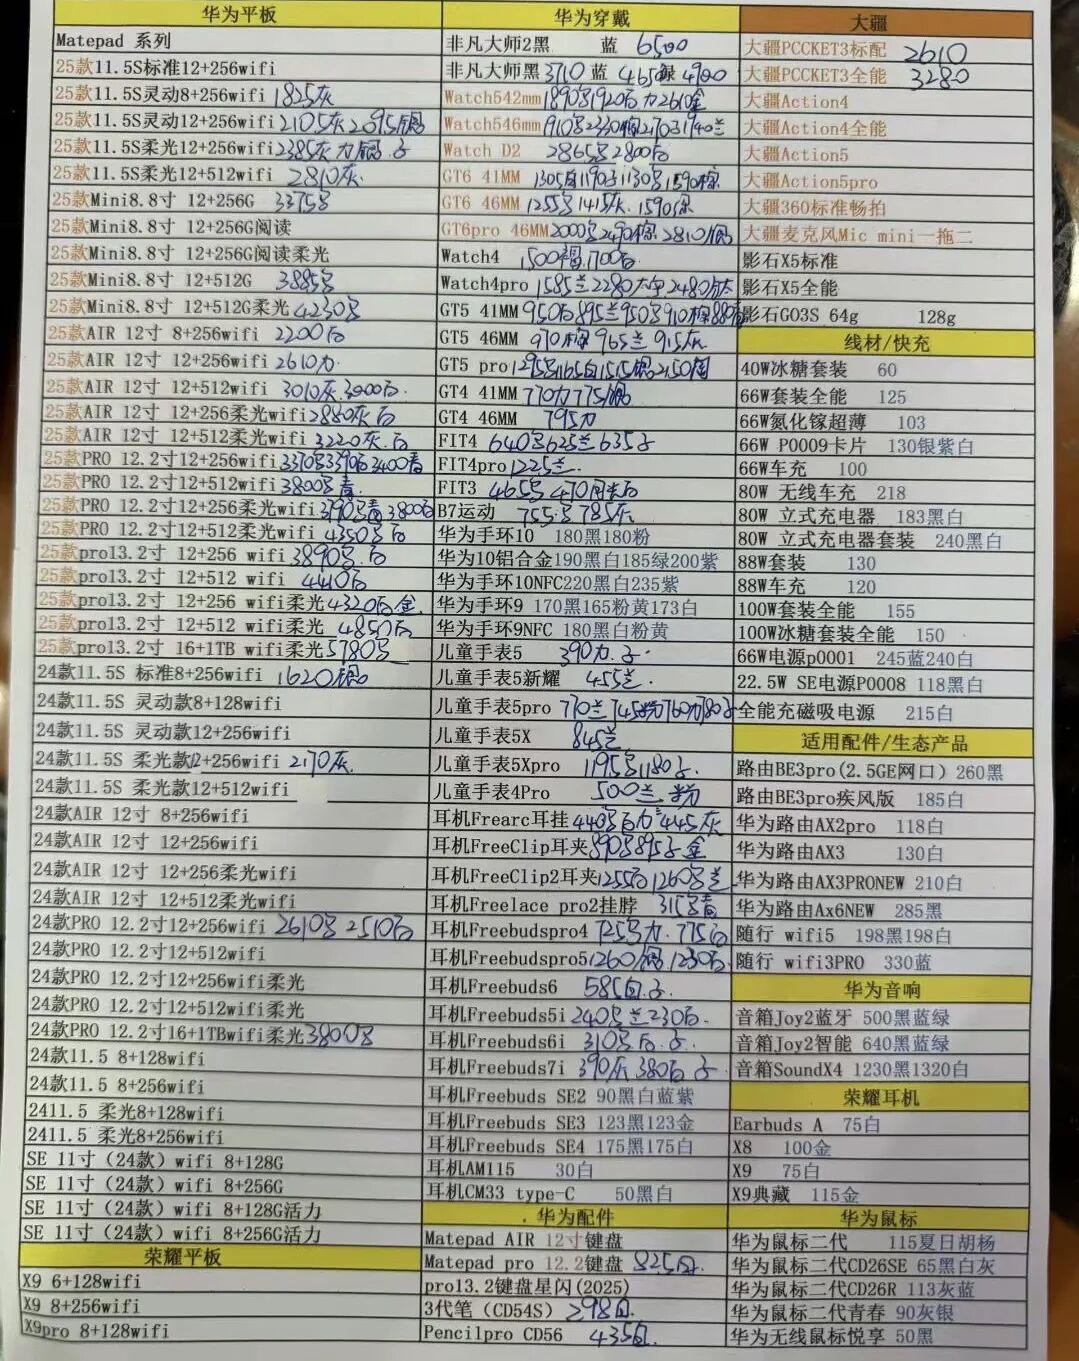 华为平板
Matepad 系列
25款11.5S标准12+256wifi
25款11.5S灵动8+256wifi 1825灰
25款11.5S灵动12+256wifi 2105灰 2095
25款11.5S柔光12+256wifi 2385灰
25款11.5S柔光12+512wifi 2810灰.
25款Mini8.8寸 12+256G 3375
25款Mini8.8寸 12+256G阅读
25款Mini8.8寸 12+256G阅读柔光
25款Mini8.8寸 12+512G 3885
25款Mini8.8寸 12+512G柔光 4230
25款AIR 12寸 8+256wifi 2200白
25款AIR 12寸 12+256wifi 2610
25款AIR 12寸 12+512wifi 3010灰.3000白.
25款AIR 12寸 12+256柔光wifi 2880灰 白
25款AIR 12寸 12+512柔光wifi 3220灰.白
25款PRO 12.2寸12+256wifi 3370 3390白 3400青
25款PRO 12.2寸12+512wifi 3800 青
25款PRO 12.2寸12+256柔光wifi 青 3800白
25款PRO 12.2寸12+512柔光wifi 4350 白
25款pro13.2寸 12+256 wifi 3890 白
25款pro13.2寸 12+512 wifi 4410白
25款pro13.2寸 12+256 wifi柔光 4320白金
25款pro13.2寸 12+512 wifi柔光 4850白
25款pro13.2寸 16+1TB wifi柔光 5780
24款11.5S 标准8+256wifi 1620
24款11.5S 灵动款8+128wifi
24款11.5S 灵动款12+256wifi
24款11.5S 柔光款12+256wifi 2170灰.
24款11.5S 柔光款12+512wifi
24款AIR 12寸 8+256wifi
24款AIR 12寸 12+256wifi
24款AIR 12寸 12+256柔光wifi
24款AIR 12寸 12+512柔光wifi
24款PRO 12.2寸12+256wifi 2610 2510白
24款PRO 12.2寸12+512wifi
24款PRO 12.2寸12+256wifi柔光
24款PRO 12.2寸12+512wifi柔光
24款PRO 12.2寸16+1TBwifi柔光 3800
24款11.5 8+128wifi
24款11.5 8+256wifi
2411.5 柔光8+128wifi
2411.5 柔光8+256wifi
SE 11寸（24款）wifi 8+128G
SE 11寸（24款）wifi 8+256G
SE 11寸（24款）wifi 8+128G活力
SE 11寸（24款）wifi 8+256G活力
荣耀平板
X9 6+128wifi
X9 8+256wifi
X9pro 8+128wifi
华为穿戴
非凡大师2黑 蓝 6500
非凡大师黑 3710 蓝 4650 绿 4900
Watch542mm 1890 1920白 2610金
Watch546mm 1910 2330 2170 1940兰
Watch D2 2865 2800白
GT6 41MM 1305白 1190 1130 1590棕
GT6 46MM 1255 1415灰.1590
GT6pro 46MM 2000 2490棕 2810
Watch4 1500 1700白
Watch4pro 1585兰 2280 2480
GT5 41MM 950白 895兰 950 910棕 880
GT5 46MM 970棕 965兰 915灰
GT5 pro 1295 1165白 1515 2150
GT4 41MM 770 775
GT4 46MM 795
FIT4 640 625兰 635
FIT4pro 1225兰.
FIT3 465 470
B7运动 755 785灰
华为手环10 180黑180粉
华为10铝合金190黑白185绿200紫
华为手环10NFC220黑白235紫
华为手环9 170黑165粉黄173白
华为手环9NFC 180黑白粉黄
儿童手表5 390
儿童手表5新耀 455兰.
儿童手表5pro 770兰 745粉 760 780
儿童手表5X 845兰
儿童手表5Xpro 1195 1180
儿童手表4Pro 500兰 粉
耳机Frearc耳挂 440 白 445灰
耳机FreeClip耳夹 890 895 金
耳机FreeClip2耳夹 1255白 1260 兰
耳机Freelace pro2挂脖 315 青
耳机Freebudspro4 725 775白
耳机Freebudspro5 1260 1230白.
耳机Freebuds6 585白
耳机Freebuds5i 240 兰 230白.
耳机Freebuds6i 310 白
耳机Freebuds7i 390灰 380白
耳机Freebuds SE2 90黑白蓝紫
耳机Freebuds SE3 123黑123金
耳机Freebuds SE4 175黑175白
耳机AM115 30白
耳机CM33 type-C 50黑白
华为配件
Matepad AIR 12寸键盘
Matepad pro 12.2键盘 825白.
pro13.2键盘星闪(2025)
3代笔（CD54S） 298白.
Pencilpro CD56 435白.
大疆
大疆PCCKET3标配 2610
大疆PCCKET3全能 3280
大疆Action4
大疆Action4全能
大疆Action5
大疆Action5pro
大疆360标准畅拍
大疆麦克风Mic mini一拖二
影石X5标准
影石X5全能
影石GO3S 64g 128g
线材/快充
40W冰糖套装 60
66W套装全能 125
66W氮化镓超薄 103
66W P0009卡片 130银紫白
66W车充 100
80W 无线车充 218
80W 立式充电器 183黑白
80W 立式充电器套装 240黑白
88W套装 130
88W车充 120
100W套装全能 155
100W冰糖套装全能 150
66W电源p0001 245蓝240白
22.5W SE电源P0008 118黑白
全能充磁吸电源 215白
适用配件/生态产品
路由BE3pro(2.5GE网口) 260黑
路由BE3pro疾风版 185白
华为路由AX2pro 118白
华为路由AX3 130白
华为路由AX3PRONEW 210白
华为路由Ax6NEW 285黑
随行 wifi5 198黑198白
随行 wifi3PRO 330蓝
华为音响
音箱Joy2蓝牙 500黑蓝绿
音箱Joy2智能 640黑蓝绿
音箱SoundX4 1230黑1320白
荣耀耳机
Earbuds A 75白
X8 100金
X9 75白
X9典藏 115金
华为鼠标
华为鼠标二代 115夏日胡杨
华为鼠标二代CD26SE 65黑白灰
华为鼠标二代CD26R 113灰蓝
华为鼠标二代青春 90灰银
华为无线鼠标悦享 50黑